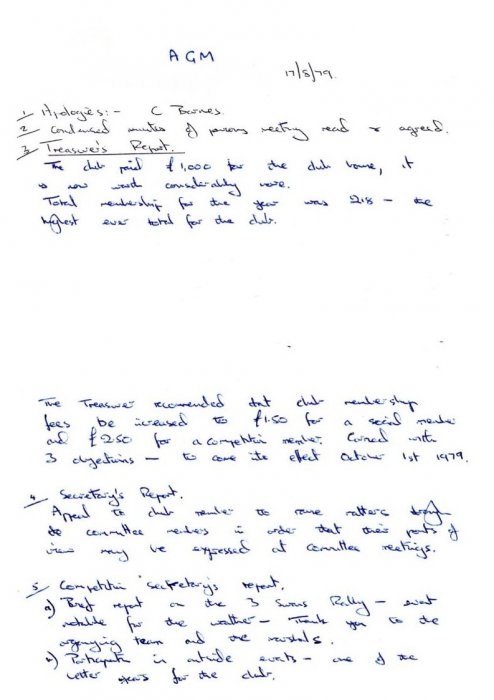 AGM
17/8/79.
1 Apologies:- C Barnes.
2 Condensed minutes of previous meeting read & agreed.
3 Treasurer's Report.
The club paid £1,000 for the club house, it
is now worth considerably more.
Total membership for the year was 218 - the
highest ever total for the club.
The Treasurer recommended that club membership
fees be increased to £1.50 for a social member
and £2.50 for a competition member. Carried with
3 objections - to come into effect October 1st 1979.
4 Secretary's Report.
Appeal to club member to raise matters through
the committee members in order that their points of
view may be expressed at committee meetings.
5 Competition Secretary's report.
a) Brief report on the 3 Swans Rally - event
notable for the weather - Thank you to the
organising team and the marshals.
b) Participation in outside events - one of the
better years for the club.